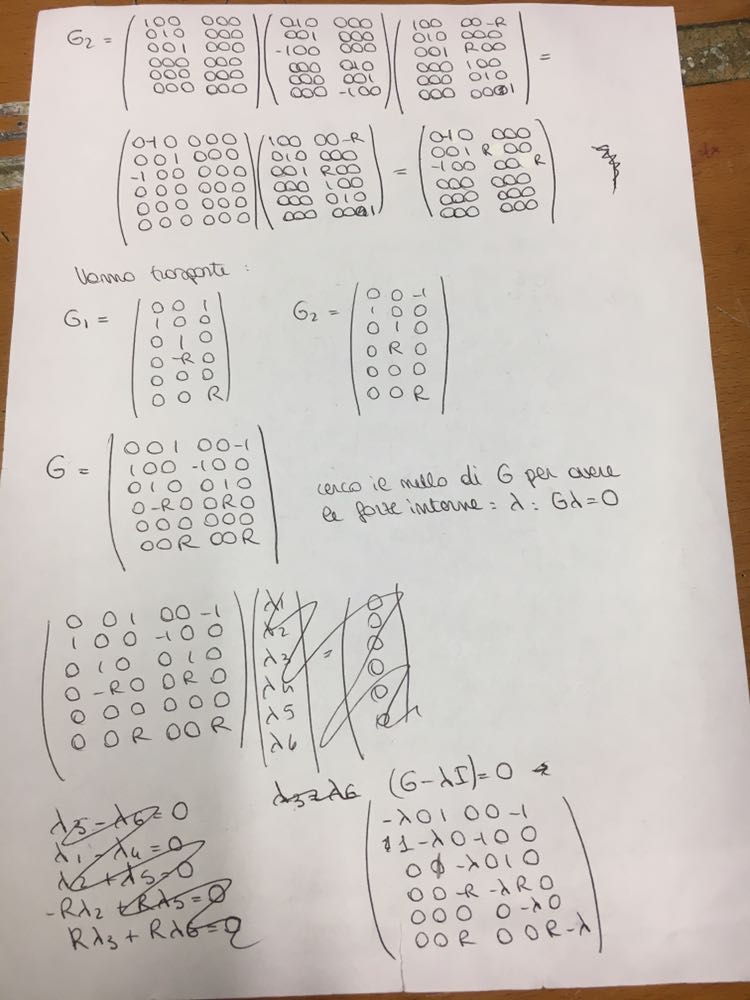 G₂ = (100 000 / 010 000 / 001 000 / 000 000 / 000 000 / 000 000) (010 000 / 001 000 / -100 000 / 000 010 / 000 001 / 000 -100) (100 00-R / 010 000 / 001 R00 / 000 100 / 000 010 / 000 001) =
(0-10 000 / 001 000 / -100 000 / 000 000 / 000 000 / 000 000) (100 00-R / 010 000 / 001 R00 / 000 100 / 000 010 / 000 001) = (0-10 000 / 001 R00 / -100 00R / 000 000 / 000 000 / 000 000)
Vanno trasposte :
G₁ = (0 0 1 / 1 0 0 / 0 1 0 / 0 -R 0 / 0 0 0 / 0 0 R) G₂ = (0 0 -1 / 1 0 0 / 0 1 0 / 0 R 0 / 0 0 0 / 0 0 R)
G = (0 0 1 0 0 -1 / 1 0 0 -1 0 0 / 0 1 0 0 1 0 / 0 -R 0 0 R 0 / 0 0 0 0 0 0 / 0 0 R 0 0 R)
cerco il nullo di G per avere
le forze interne = λ : Gλ=0
(0 0 1 0 0 -1 / 1 0 0 -1 0 0 / 0 1 0 0 1 0 / 0 -R 0 0 R 0 / 0 0 0 0 0 0 / 0 0 R 0 0 R) (λ1 / λ2 / λ3 / λ5 / λ5 / λ6) = (0 / 0 / 0 / 0 / 0 / 0)
λ3 - λ6 = 0
λ1 - λ4 = 0
λ2 + λ5 = 0
-Rλ2 + Rλ5 = 0
Rλ3 + Rλ6 = 0
λ3=λ6 (G-λI)=0
(-λ 0 1 0 0 -1 / 1 -λ 0 -1 0 0 / 0 -λ 0 1 0 / 0 0 -R -λ R 0 / 0 0 0 0 -λ 0 / 0 0 R 0 0 R-λ)